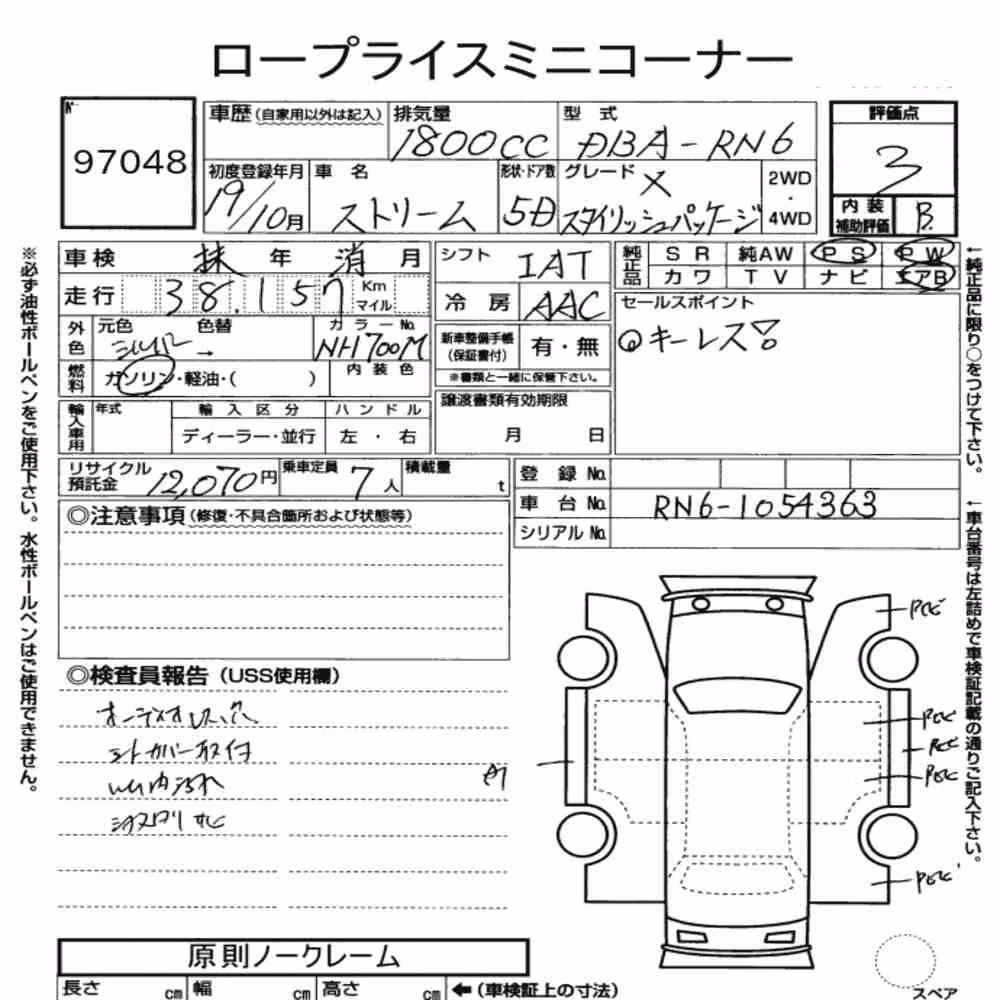 ロープライスミニコーナー
№
97048
車歴(自家用以外は記入)
排気量
1800cc
型式
DBA-RN6
評価点
3
初度登録年月
19/10月
車名
ストリーム
形状・ドア数
5D
グレード
X
スタイリッシュパッケージ
2WD
・
4WD
内装
補助評価
B
車検 抹 年 消 月
シフト
IAT
純正品
SR 純AW PS PW
カワ TV ナビ エアB
走行 38,157 Km
マイル
冷房 AAC
セールスポイント
◎キーレス
外色
元色 色替
シルバー →
カラーNo.
NH700M
新車整備手帳
(保証書付)
有・無
※書類と一緒に保管下さい。
燃料
ガソリン・軽油・( )
内装色
輸入車用
年式
輸入区分
ハンドル
ディーラー・並行
左・右
譲渡書類有効期限
月 日
リサイクル
預託金
12,070円
乗車定員
7人
積載量
t
登録No.
車台No.
RN6-1054363
シリアルNo.
◎注意事項(修復・不具合箇所および状態等)
◎検査員報告(USS使用欄)
シートカバー取付
A1
原則ノークレーム
長さ cm 幅 cm 高さ cm ←(車検証上の寸法)
スペア
※必ず油性ボールペンをご使用下さい。水性ボールペンはご使用できません。
←純正品に限り○をつけて下さい。
←車台番号は左詰めで車検証記載の通りご記入下さい。